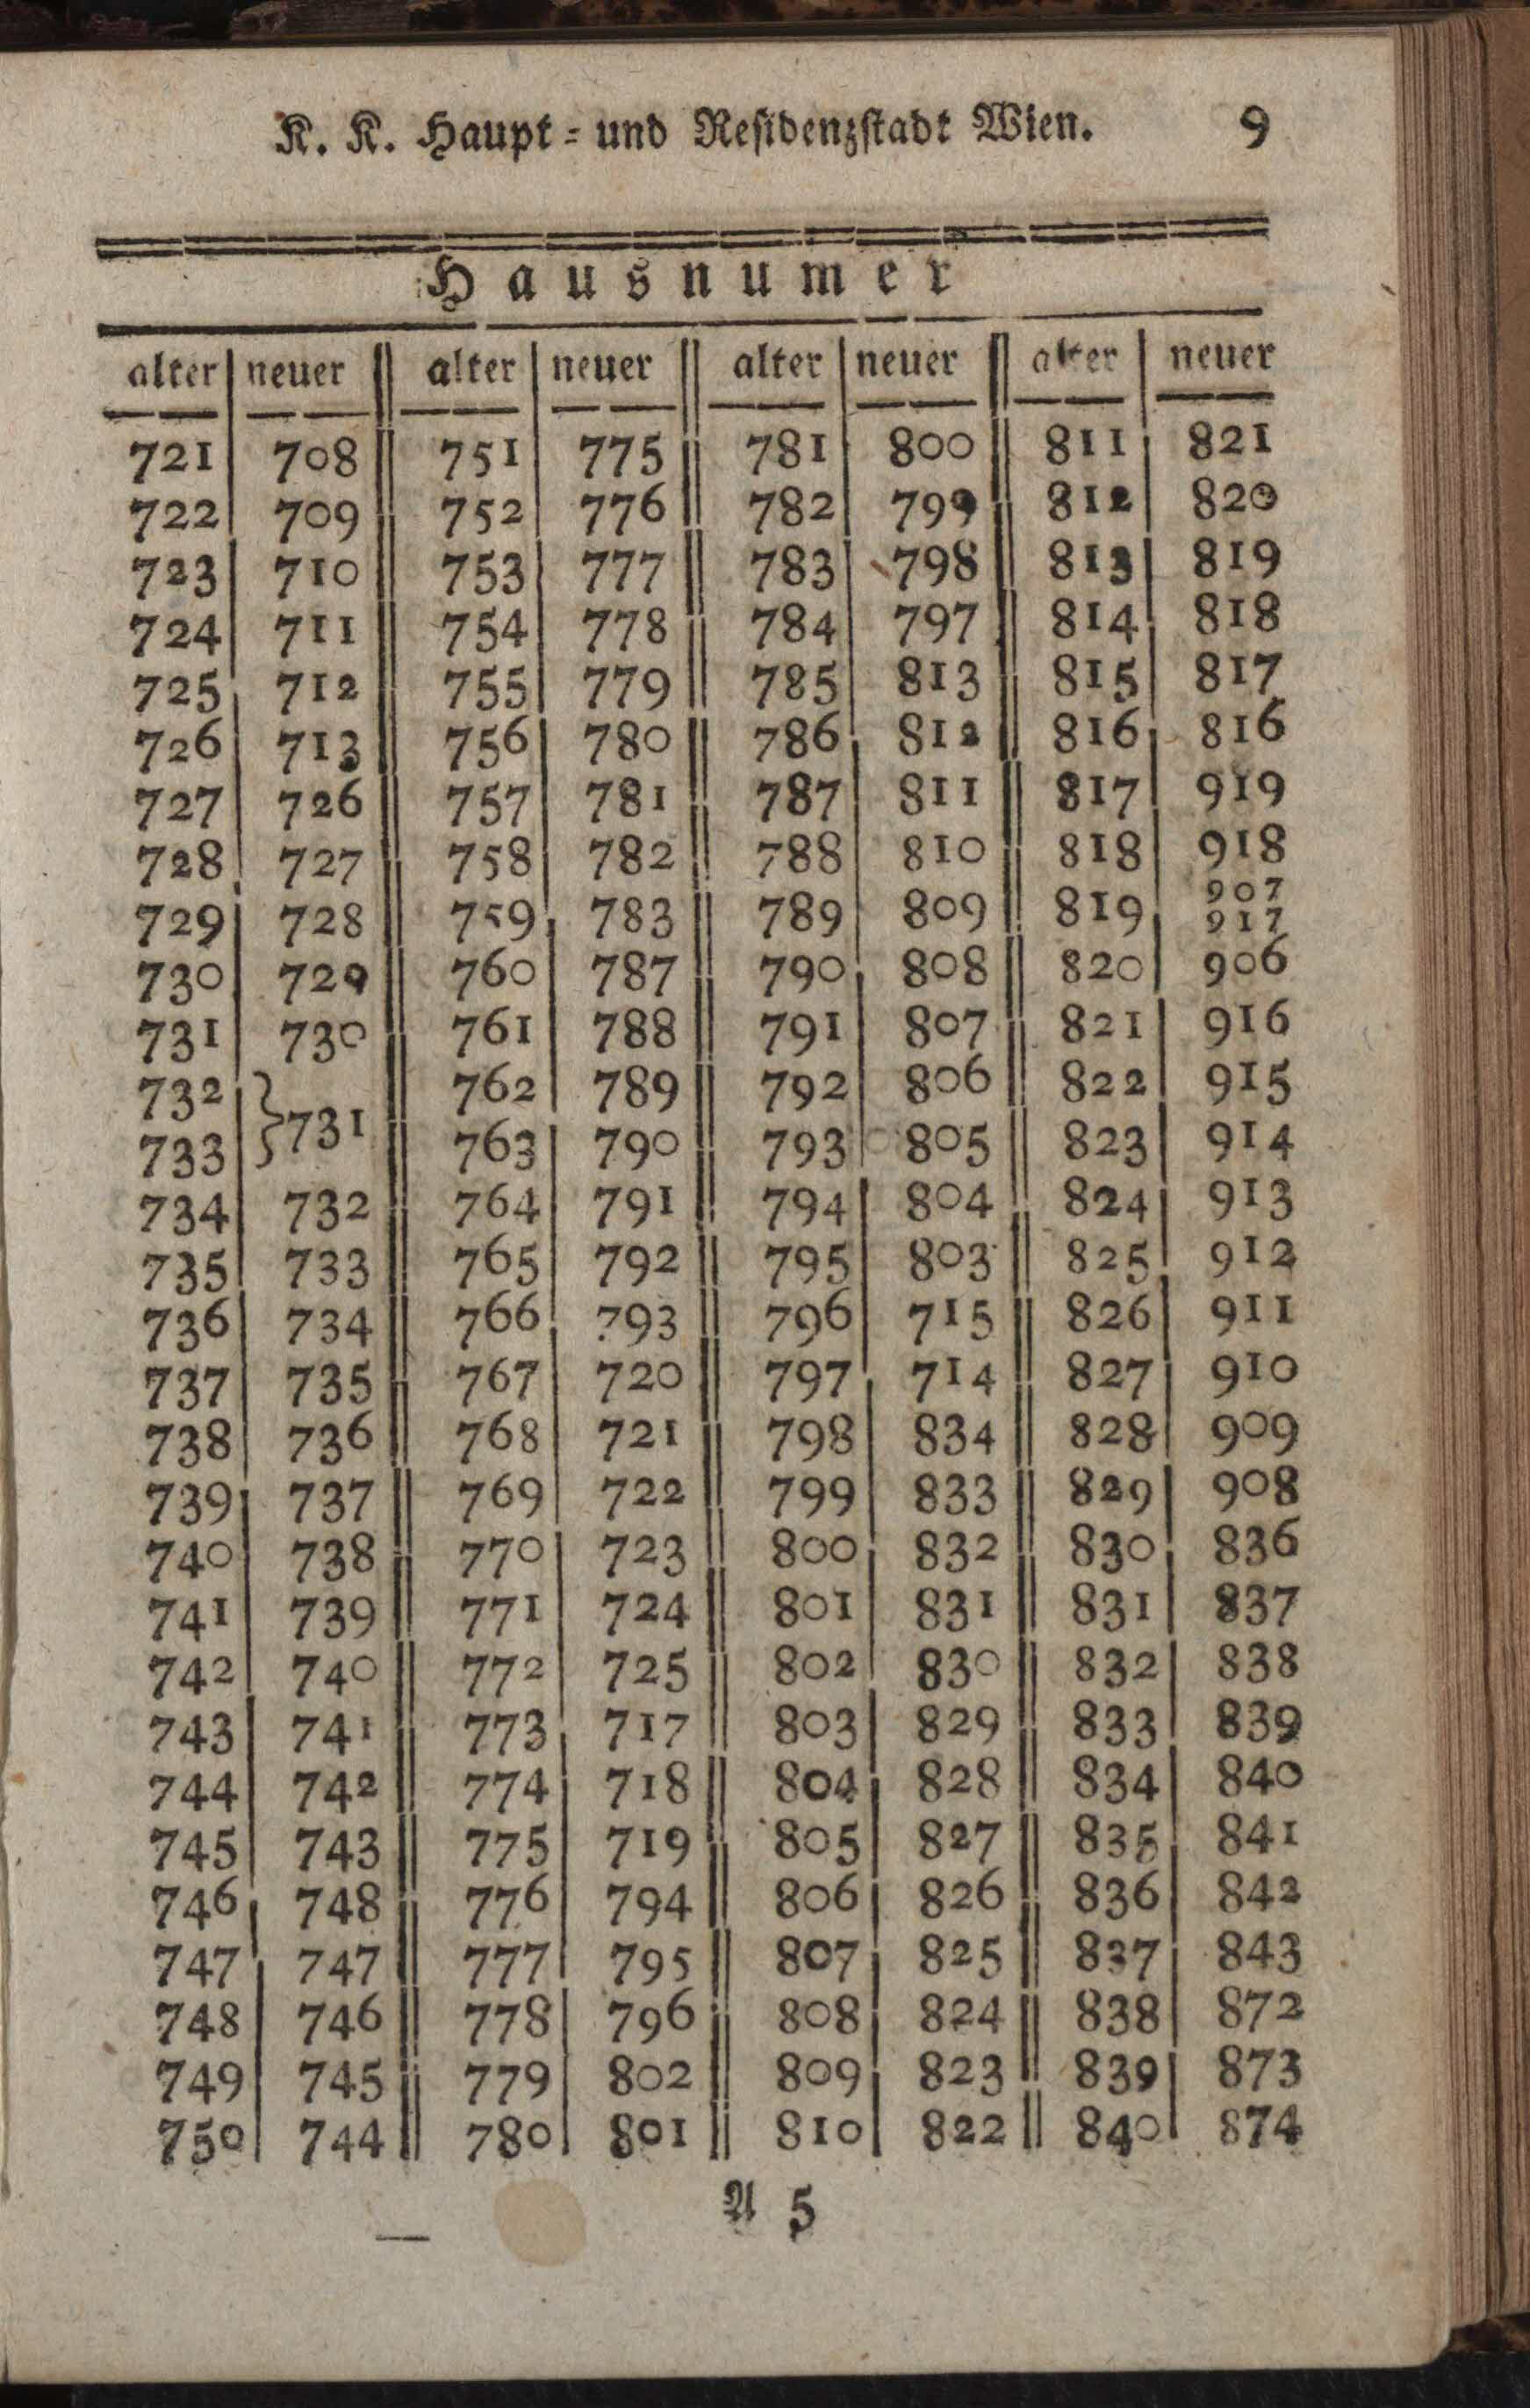 K. K. Haupt- und Residenzstadt Wien. 9
Hausnumer
alter neuer alter neuer alter neuer alter neuer
721 708 751 775 781 800 811 821
722 709 752 776 782 799 812 820
723 710 753 777 783 798 813 819
724 711 754 778 784 797 814 818
725 712 755 779 785 813 815 817
726 713 756 780 786 812 816 816
727 726 757 781 787 811 817 919
728 727 758 782 788 810 818 918
729 728 759 783 789 809 819 907 917
730 729 760 787 790 808 820 906
731 730 761 788 791 807 821 916
732 } 731 762 789 792 806 822 915
733 763 790 793 805 823 914
734 732 764 791 794 804 824 913
735 733 765 792 795 803 825 912
736 734 766 793 796 715 826 911
737 735 767 720 797 714 827 910
738 736 768 721 798 834 828 909
739 737 769 722 799 833 829 908
740 738 770 723 800 832 830 836
741 739 771 724 801 831 831 837
742 740 772 725 802 830 832 838
743 741 773 717 803 829 833 839
744 742 774 718 804 828 834 840
745 743 775 719 805 827 835 841
746 748 776 794 806 826 836 842
747 747 777 795 807 825 837 843
748 746 778 796 808 824 838 872
749 745 779 802 809 823 839 873
750 744 780 801 810 822 840 874
A 5